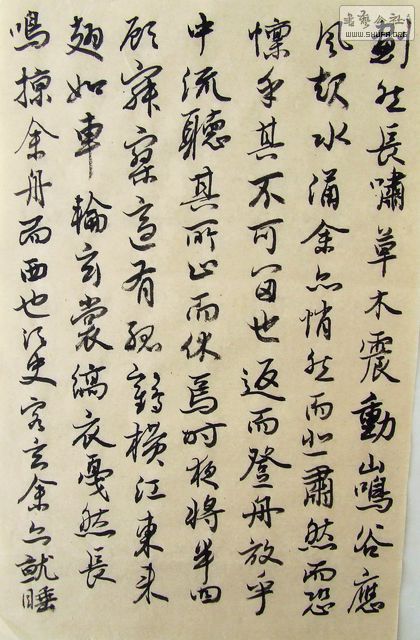 劃然長嘯草木震動山鳴谷應
風起水涌余亦悄然而悲肅然而恐
懔乎其不可留也返而登舟放乎
中流聽其所止而休焉时夜將半四
顧寂寥適有孤鶴橫江東来
翅如車輪玄裳縞衣戛然長
鳴掠余舟而西也須臾客去余亦就睡
书藝公社
WWW.SHUFA.ORG